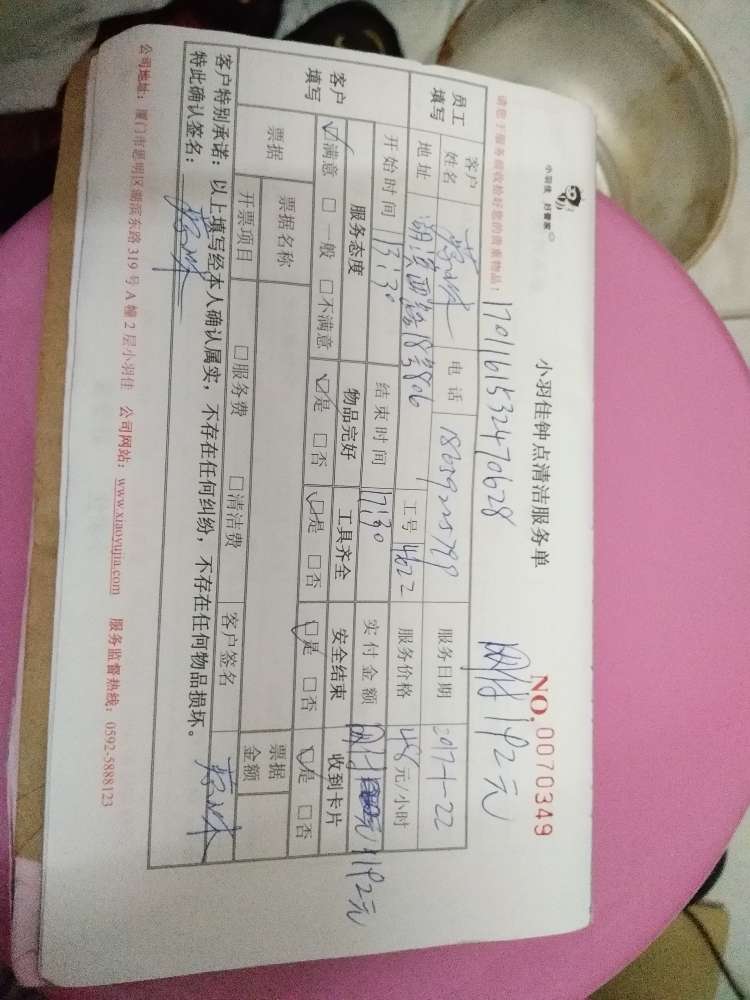 小羽佳 好管家
小羽佳钟点清洁服务单
NO. 0070349
请您于服务前收拾好您的贵重物品:
17011615332470628
网付192元
员工填写
客户姓名
电话
服务日期 2017-1-22
地址 湖滨西路18号806
工号 4622
服务价格 48元/小时
开始时间 13:30
结束时间 17:30
实付金额 网付 192元
客户填写
服务态度 物品完好 工具齐全 安全结束 收到卡片
☑满意 □一般 □不满意 ☑是 □否 ☑是 □否 ☑是 □否 ☑是 □否
票据
票据名称
客户签名
开票项目 □服务费 □清洁费
票据金额
客户特别承诺:以上填写经本人确认属实,不存在任何纠纷,不存在任何物品损坏。
特此确认签名:
公司地址:厦门市思明区湖滨东路319号A幢2层小羽佳 公司网站:www.xiaoyujia.com 服务监督热线:0592-5888123